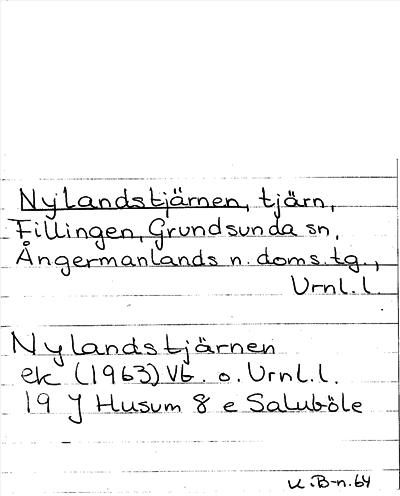 Nylandstjärnen, tjärn,
Fillingen, Grundsunda sn,
Ångermanlands n. doms.tg.,
Vrnl.l.
Nylandstjärnen
ek (1963) Vb. o. Vrnl.l.
19 J Husum 8 e Saluböle
U.B-n.64